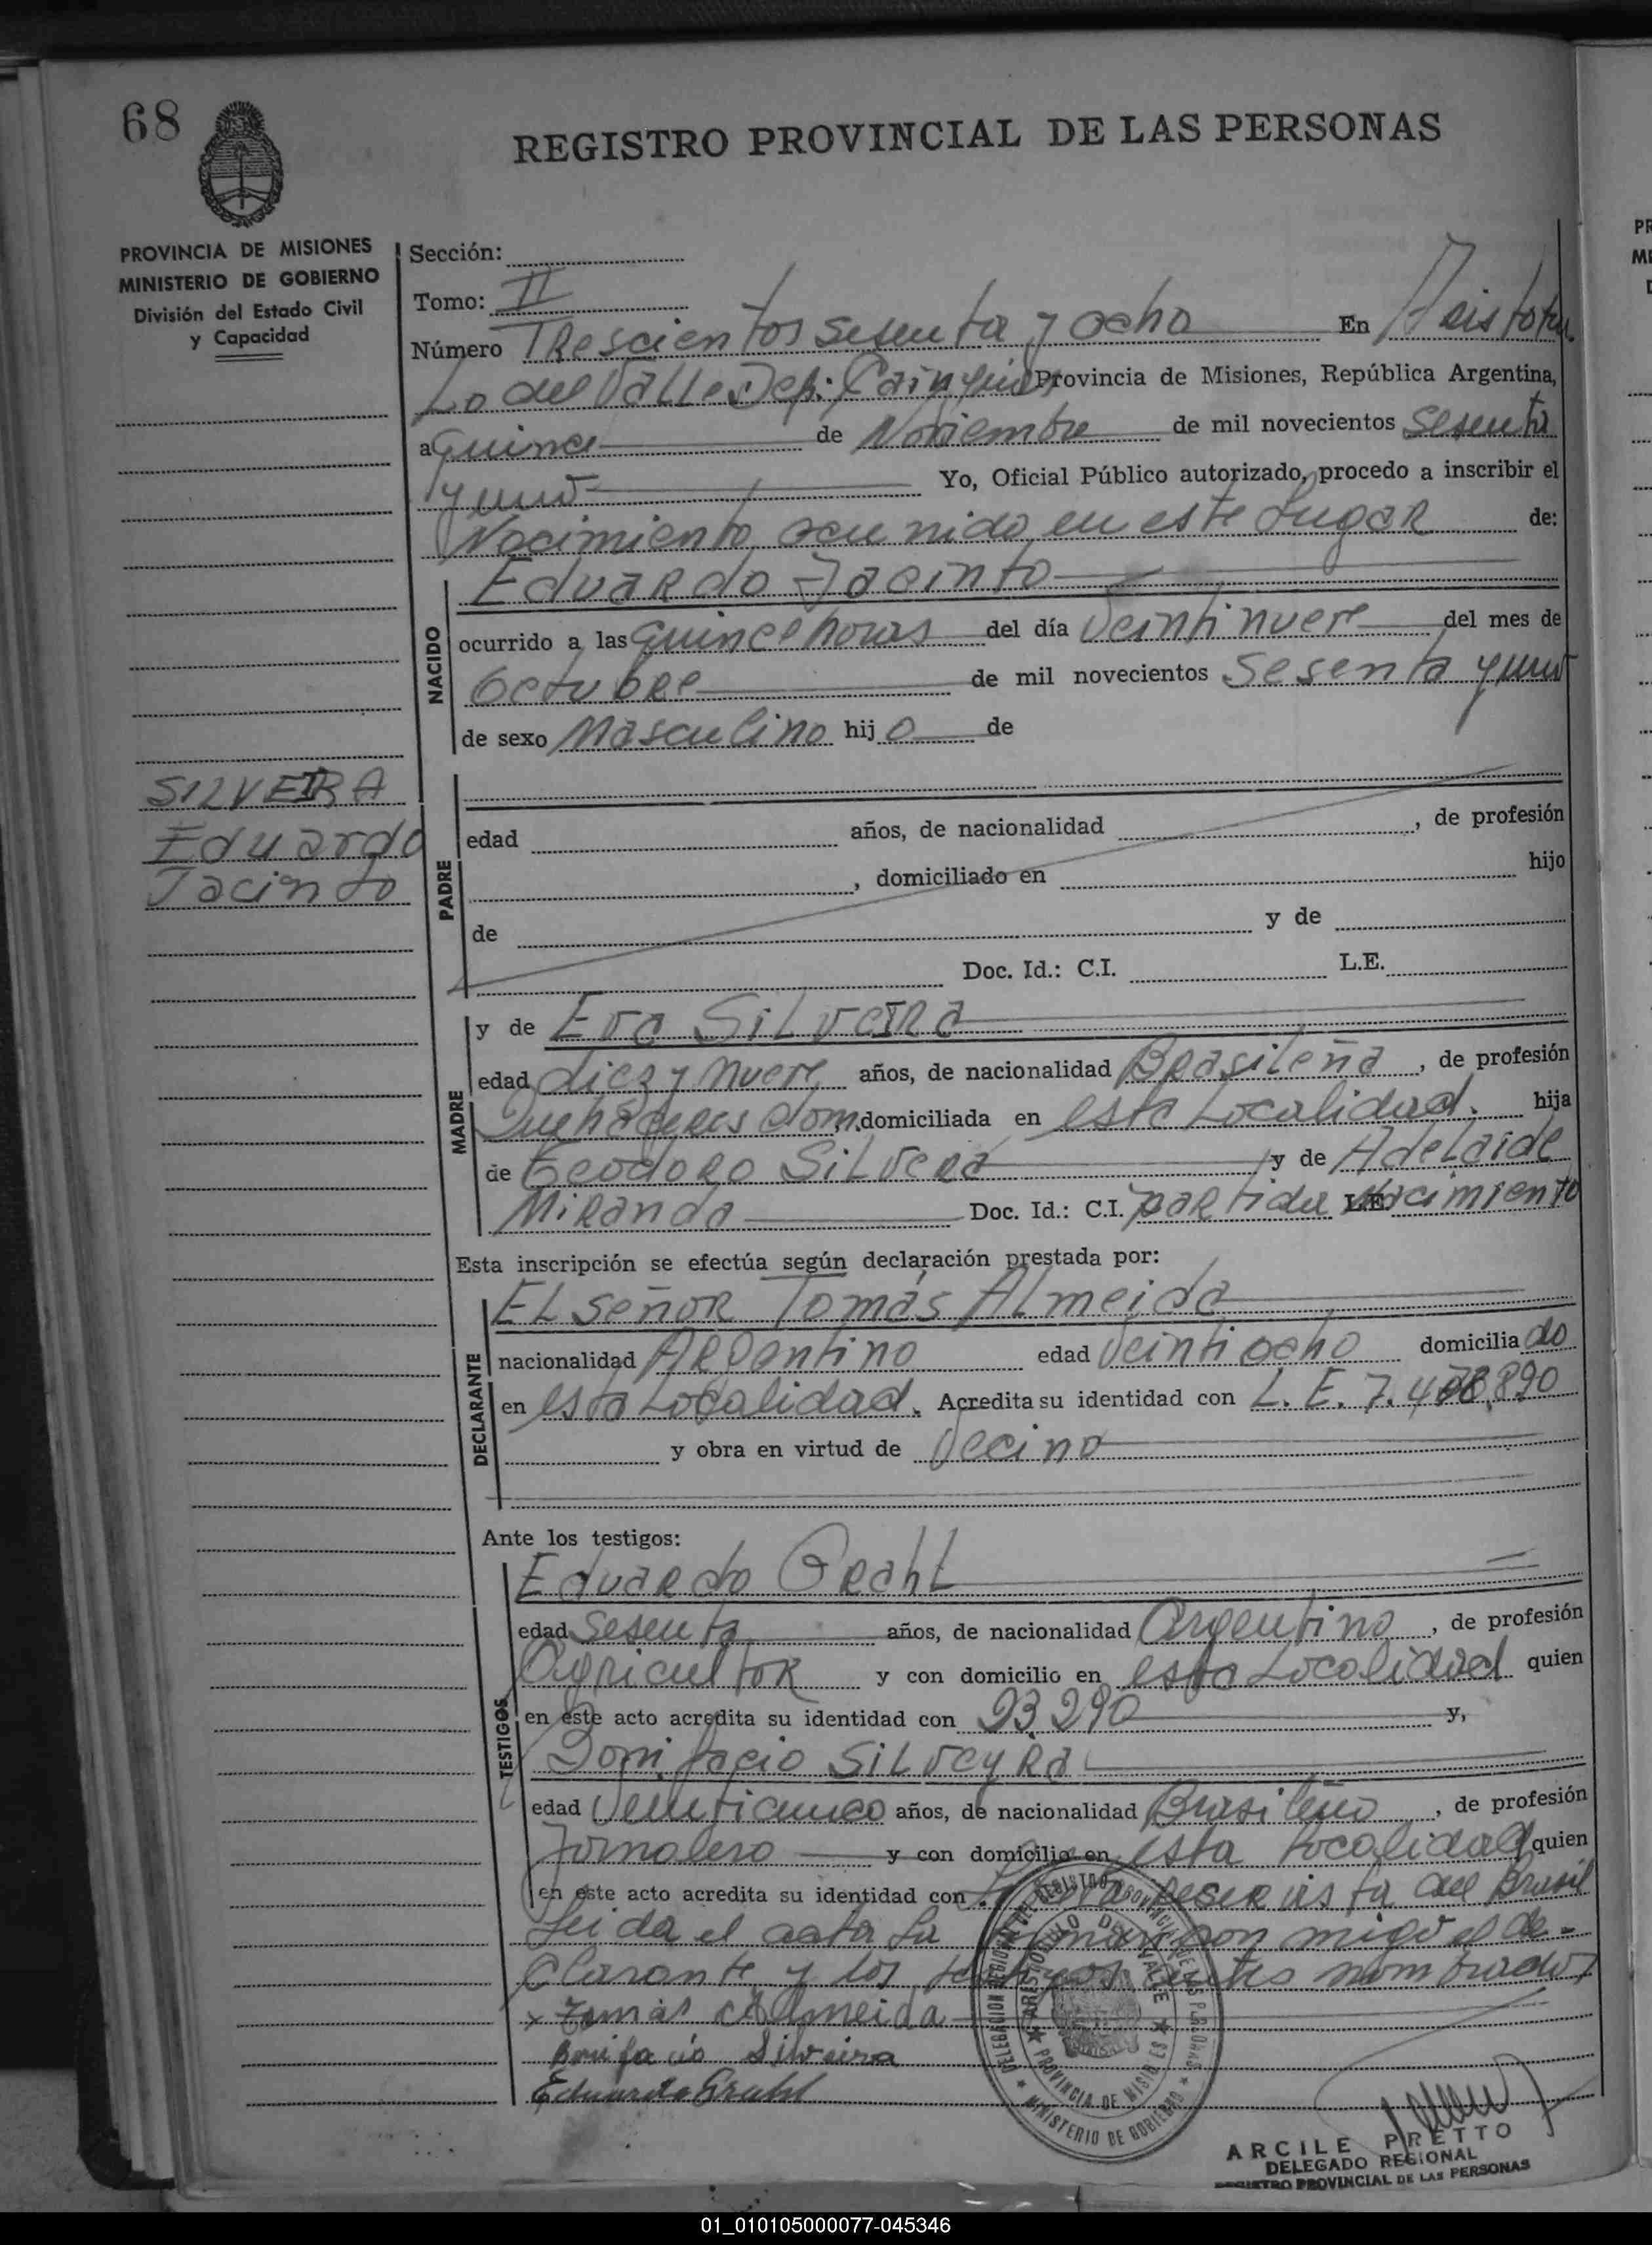 68
REGISTRO PROVINCIAL DE LAS PERSONAS
PROVINCIA DE MISIONES
MINISTERIO DE GOBIERNO
División del Estado Civil
y Capacidad
Sección:
Tomo: II
Número Trescientos sesenta y ocho En Aristobu
Lo del Valle Dep: Cainguás Provincia de Misiones, República Argentina,
a quince de Noviembre de mil novecientos sesenta
y uno Yo, Oficial Público autorizado, procedo a inscribir el
Nacimiento ocurrido en este Lugar de:
NACIDO
Eduardo Jacinto
ocurrido a las quince horas del día Veintinueve del mes de
Octubre de mil novecientos Sesenta y uno
de sexo Masculino hij o de
SILVEIRA
Eduardo
Jacinto
PADRE
edad años, de nacionalidad , de profesión
, domiciliado en hijo
de y de
Doc. Id.: C.I. L.E.
MADRE
y de Eva SiLveira
edad diez y nueve años, de nacionalidad Brasileña, de profesión
Quehaceres dom. domiciliada en esta Localidad. hija
de Teodoro SiLvera y de AdeLaide
Miranda Doc. Id.: C.I. partida L.E. Nacimiento
Esta inscripción se efectúa según declaración prestada por:
DECLARANTE
EL señor Tomás ALmeida
nacionalidad Argentino edad Veintiocho domicilia do
en esta Localidad. Acredita su identidad con L. E. 7.478.890
y obra en virtud de Vecino
Ante los testigos:
TESTIGOS
Eduardo GrahL
edad Sesenta años, de nacionalidad Argentino, de profesión
Agricultor y con domicilio en esta Localidad quien
en este acto acredita su identidad con 93.290 y,
Bonifacio SiLveyra
edad Veinticinco años, de nacionalidad Brasileño, de profesión
Jornalero y con domicilio en esta Localidad quien
en este acto acredita su identidad con reservista del Brasil
Leida el acta la firman con migo el de-
clarante y los testigos antes nombrados
x Tomás Almeida
Bonifacio Silveira
Eduardo Grahl
DELEGACION REGIONAL DEL REGISTRO PROVINCIAL DE LAS PERSONAS
ARISTOBULO DEL VALLE
PROVINCIA DE MISIONES
MINISTERIO DE GOBIERNO
ARCILE PRETTO
DELEGADO REGIONAL
REGISTRO PROVINCIAL DE LAS PERSONAS
01_010105000077-045346